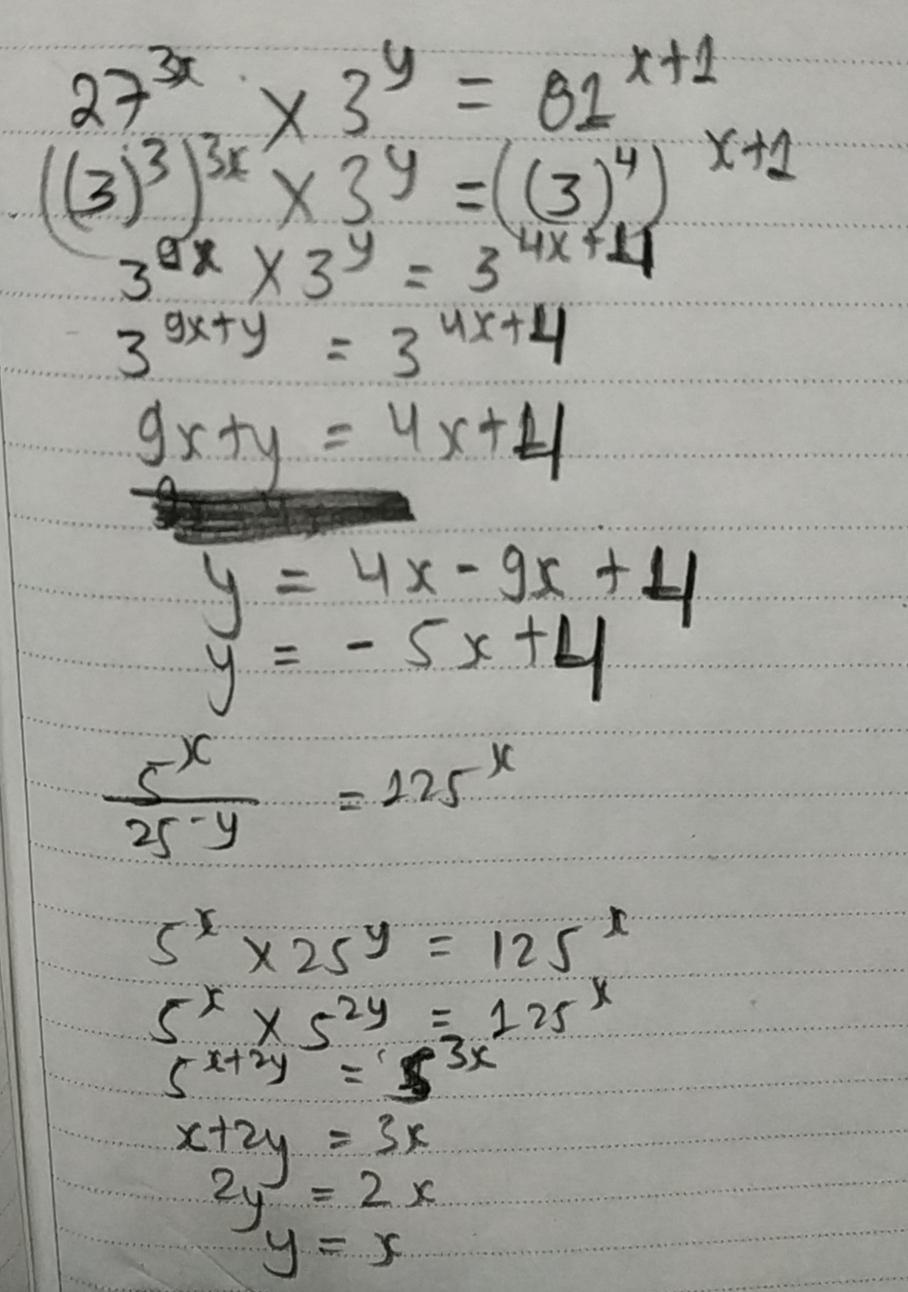 27^{3x} × 3^y = 81^{x+1}
((3)^3)^{3x} × 3^y = ((3)^4)^{x+1}
3^{9x} × 3^y = 3^{4x+4}
3^{9x+y} = 3^{4x+4}
9x+y = 4x+4
y = 4x - 9x + 4
y = - 5x + 4
5^x / 25^{-y} = 125^x
5^x × 25^y = 125^x
5^x × 5^{2y} = 125^x
5^{x+2y} = 5^{3x}
x+2y = 3x
2y = 2x
y = x